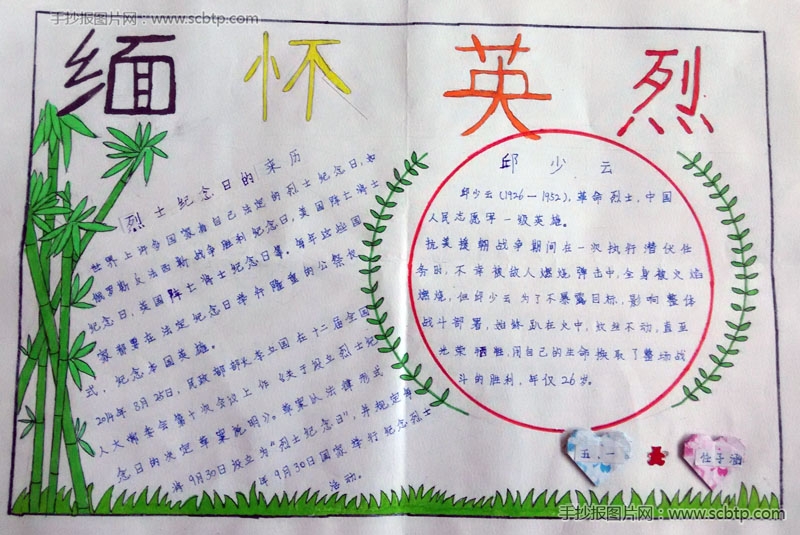 手抄报图片网:www.scbtp.com
缅怀英烈
烈士纪念日的来历
世界上许多国家有自己法定的烈士纪念日,如
俄罗斯反法西斯战争胜利纪念日,美国阵亡将士
纪念日,英国阵亡将士纪念日等。每年这些国
家都要在法定纪念日举行隆重的公祭仪
式,纪念本国英雄。
2014年8月25日,民政部部长李立国在十二届全国
人大常委会第十次会议上作《关于设立烈士纪
念日的决定草案说明》。草案以法律形式
将9月30日设立为“烈士纪念日”,并规定每
年9月30日国家举行纪念烈士
活动。
邱少云
邱少云(1926—1952),革命烈士,中国
人民志愿军一级英雄。
抗美援朝战争期间在一次执行潜伏任
务时,不幸被敌人燃烧弹击中,全身被火焰
燃烧,但邱少云为了不暴露目标,影响整体
战斗部署,始终趴在火中,纹丝不动,直至
光荣牺牲,用自己的生命换取了整场战
斗的胜利,年仅26岁。
五.一
任子涵
手抄报图片网:www.scbtp.com